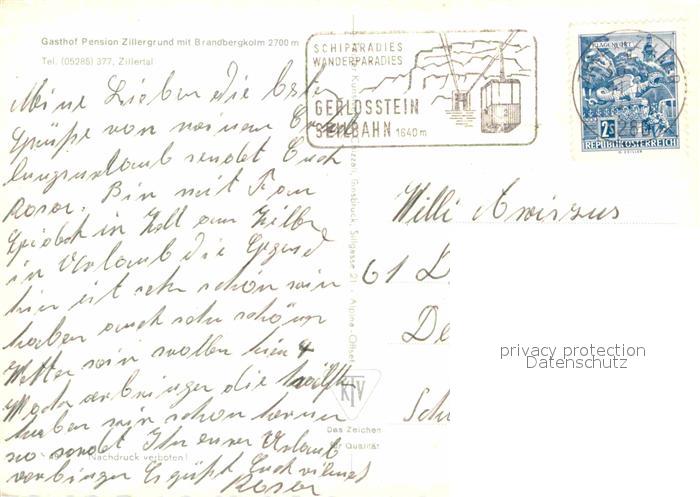 Gasthof Pension Zillergrund mit Brandbergkolm 2700 m
Tel. (05285) 377, Zillertal
SCHIPARADIES
WANDERPARADIES
GERLOSSTEIN
SEILBAHN 1640 m
KLAGENFURT
2S
REPUBLIK ÖSTERREICH
Meine Lieben die beste
Grüße von meinen
lungsurlaub sendet Euch
Rosa. Bin mit Frau
in Zell am Ziller
in Urlaub die Gegend
hier ist sehr schön wir
haben auch sehr schönes
Wetter wir wollen hier 4
verbringen die hälfte
haben wir schon herum
so sendet Urlaub
verbringer Euch vielmals
Rosa
Innsbruck, Sillgasse 21 - Alpine-Offset
Willi
61 L
De
Sch
KTV
Das Zeichen
für Qualität
Nachdruck verboten!
privacy protection
Datenschutz